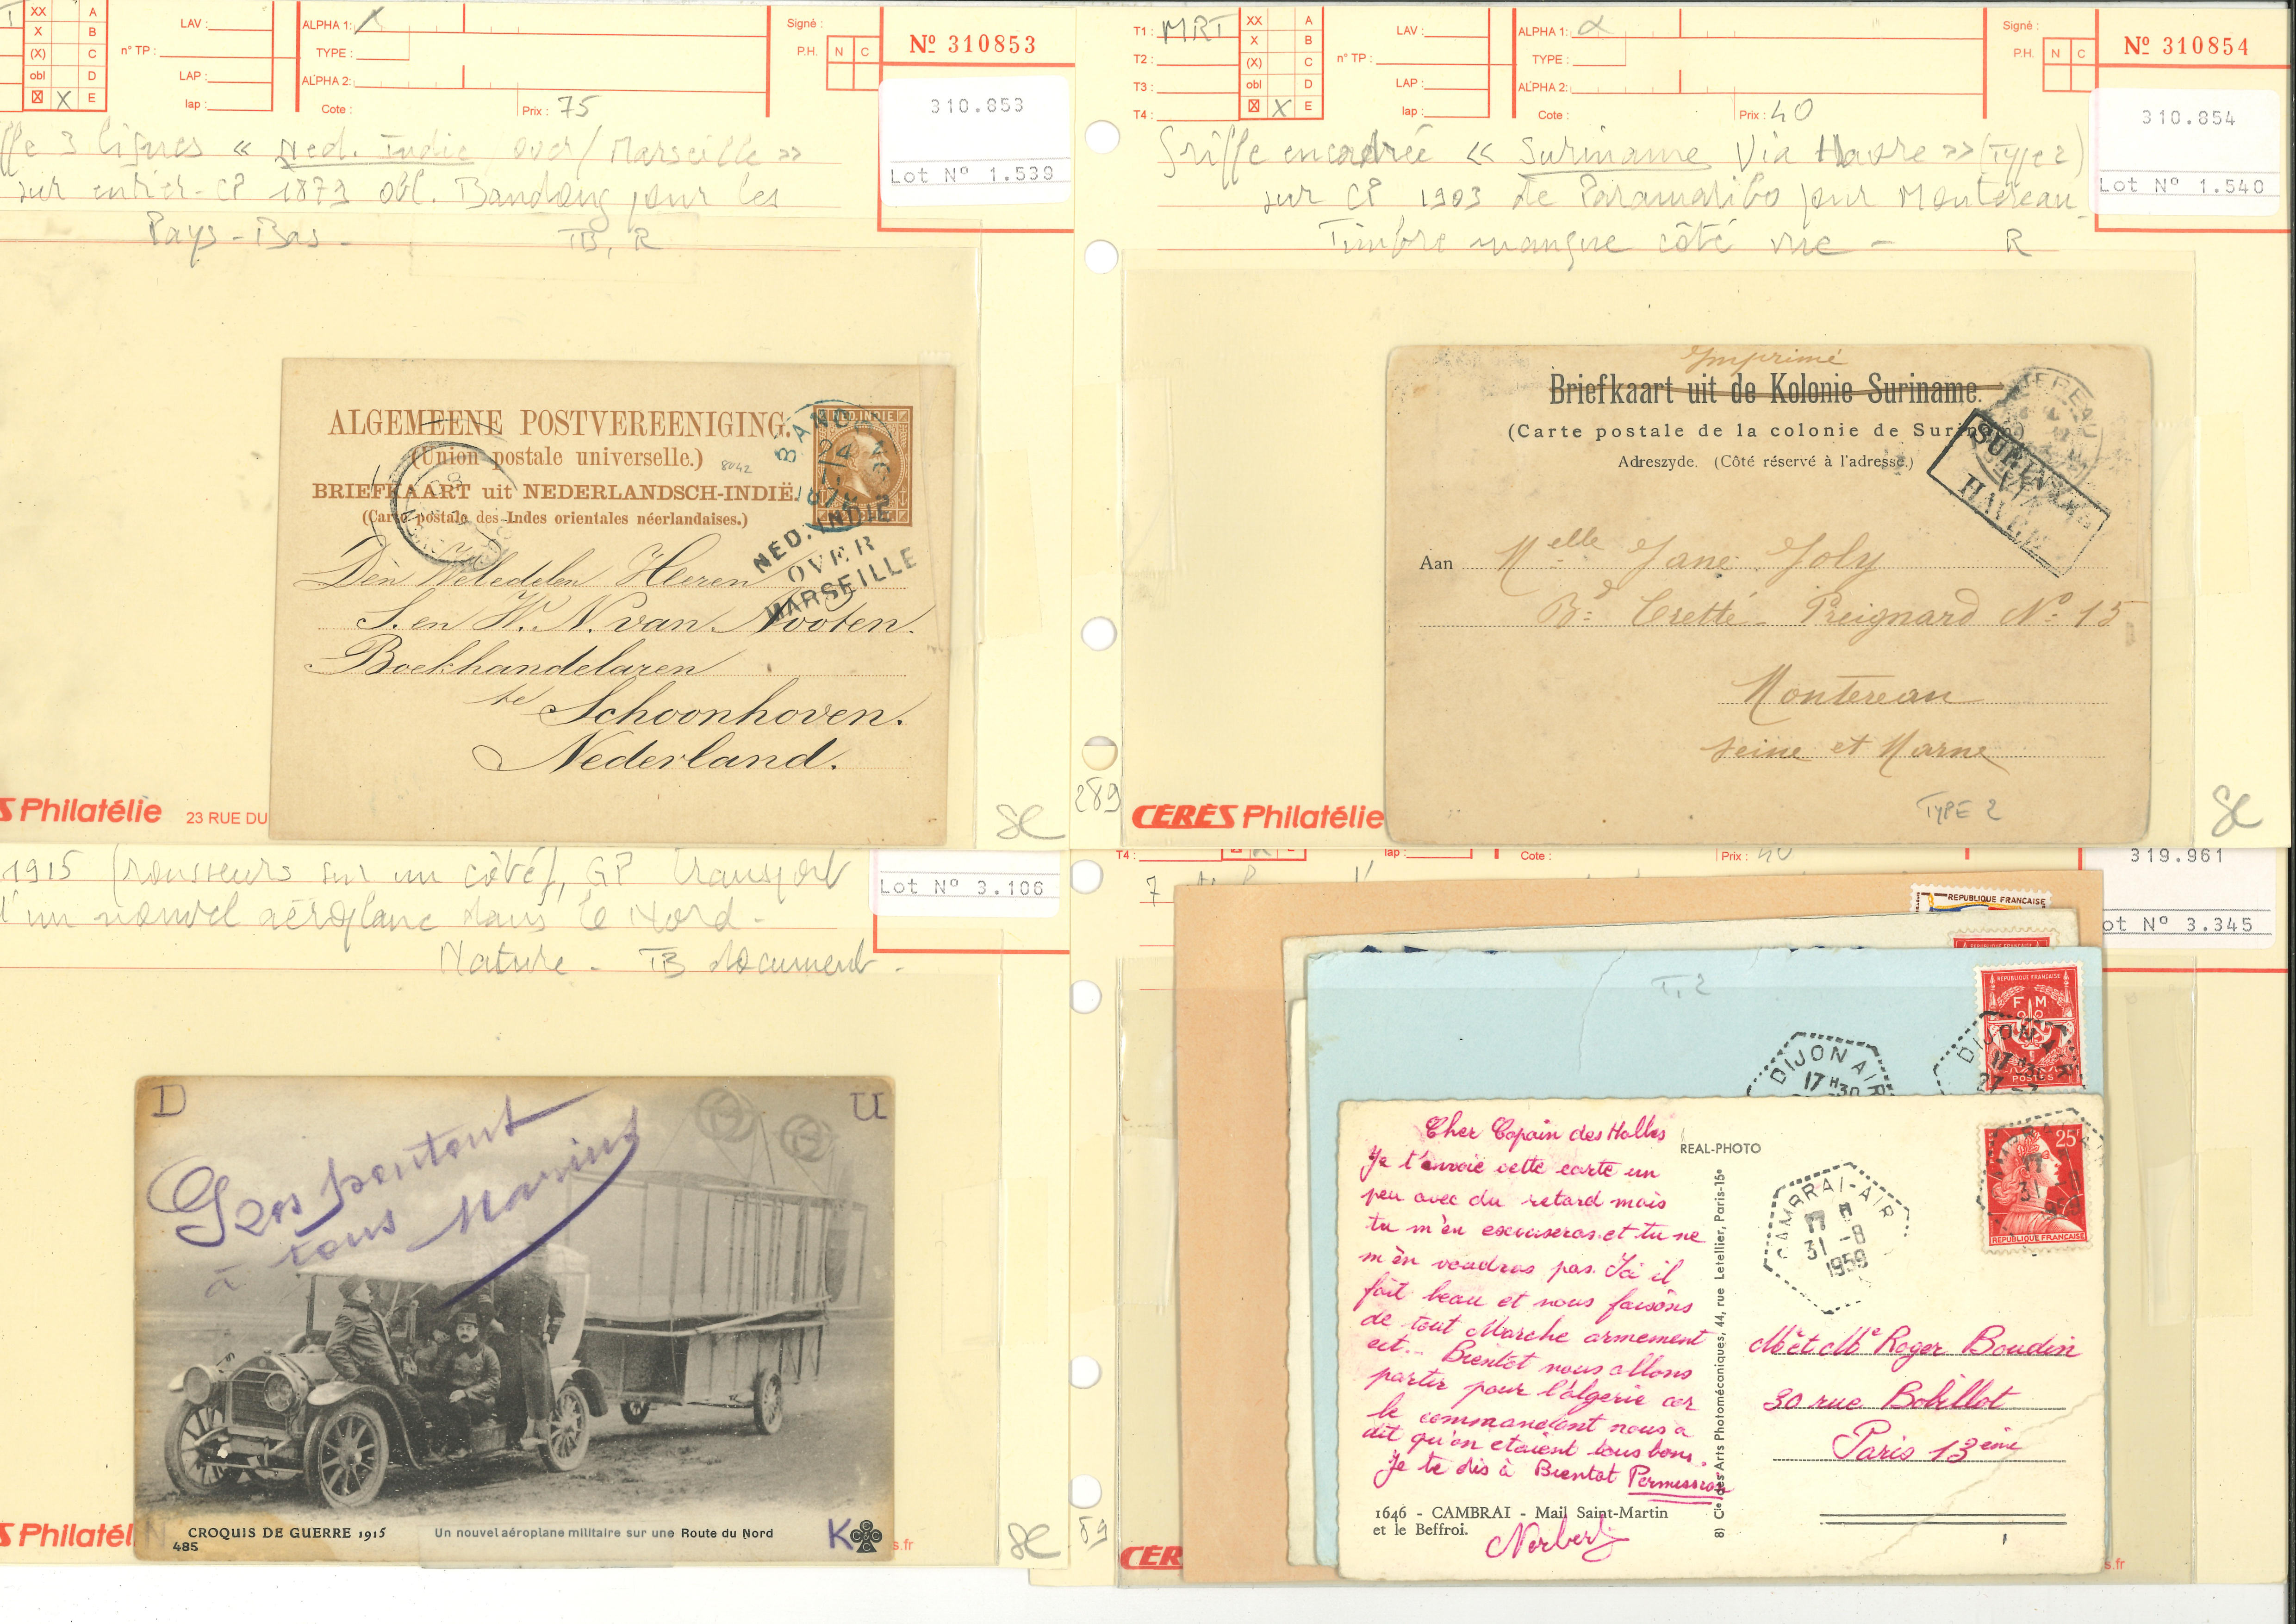 XX A
X B
(X) C
obl D
X E
LAV :
n° TP :
LAP :
lap :
ALPHA 1:
TYPE :
ALPHA 2:
Cote :
Prix : 75
Signé :
P.H. N C
Nº 310853
310.853
Lot Nº 1.539
3 lignes « Ned. Indie over / Marseille »
sur entier-CP 1873 obl. Bandong pour les
Pays-Bas - TB, R
ALGEMEENE POSTVEREENIGING.
(Union postale universelle.)
8042
BRIEFKAART uit NEDERLANDSCH-INDIË.
(Carte postale des Indes orientales néerlandaises.)
NED. INDIE
NED. INDIE
OVER
MARSEILLE
Den Weledelen Heeren
S. en W. N. van Nooten.
Boekhandelaren
te Schoonhoven.
Nederland.
S Philatélie 23 RUE DU
T1 : MRT
T2 :
T3 :
T4 :
XX A
X B
(X) C
obl D
X E
LAV :
n° TP :
LAP :
lap :
ALPHA 1:
TYPE :
ALPHA 2:
Cote :
Prix : 40
Signé :
P.H. N C
Nº 310854
310.854
Lot Nº 1.540
Griffe encadrée « Suriname Via Havre » (Type 2)
sur CP 1903 de Paramaribo pour Montereau
Timbre manque côté vue - R
Imprimé
Briefkaart uit de Kolonie Suriname.
(Carte postale de la colonie de Surinam
Adreszyde. (Côté réservé à l'adresse.)
SURINAME
VIA
HAVRE
Aan Melle Jane Joly
Bd Preignard Nº 15
Montereau
Seine et Marne
TYPE 2
289
CÉRÈS Philatélie
1915 (rousseurs sur un côté), GP transport
d'un nouvel aéroplane dans le Nord -
Nature - TB document -
Lot Nº 3.106
D U
Gros pontent
à tous Marius
N K
CROQUIS DE GUERRE 1915 Un nouvel aéroplane militaire sur une Route du Nord
485
S Philatél
s.fr
T4 :
lap :
Cote :
Prix : 40
319.961
ot Nº 3.345
7
REPUBLIQUE FRANCAISE
T.2
REPUBLIQUE FRANCAISE
F M
POSTES
DIJON AIR
17 H 30
DIJON AIR
17 H 30
27
Cher Copain des Halles
Je t'envoie cette carte un
peu avec du retard mais
tu m'en excuseras et tu ne
m'en voudras pas. Ici il
fait beau et nous faisons
de tout Marche armement
ect... Bientot nous allons
partir pour l'algerie car
le commandant nous a
dit qu'on etaient tous bons.
Je te dis à Bientot Permission
REAL-PHOTO
8) Cie des Arts Photomécaniques, 44, rue Letellier, Paris-15e
CAMBRAI-AIR
17 H
31 -8
1959
25F
REPUBLIQUE FRANCAISE
Mr et Me Roger Boudin
30 rue Bobillot
Paris 13ème
1646 - CAMBRAI - Mail Saint-Martin
et le Beffroi.
Norbert
CÉR
s.fr